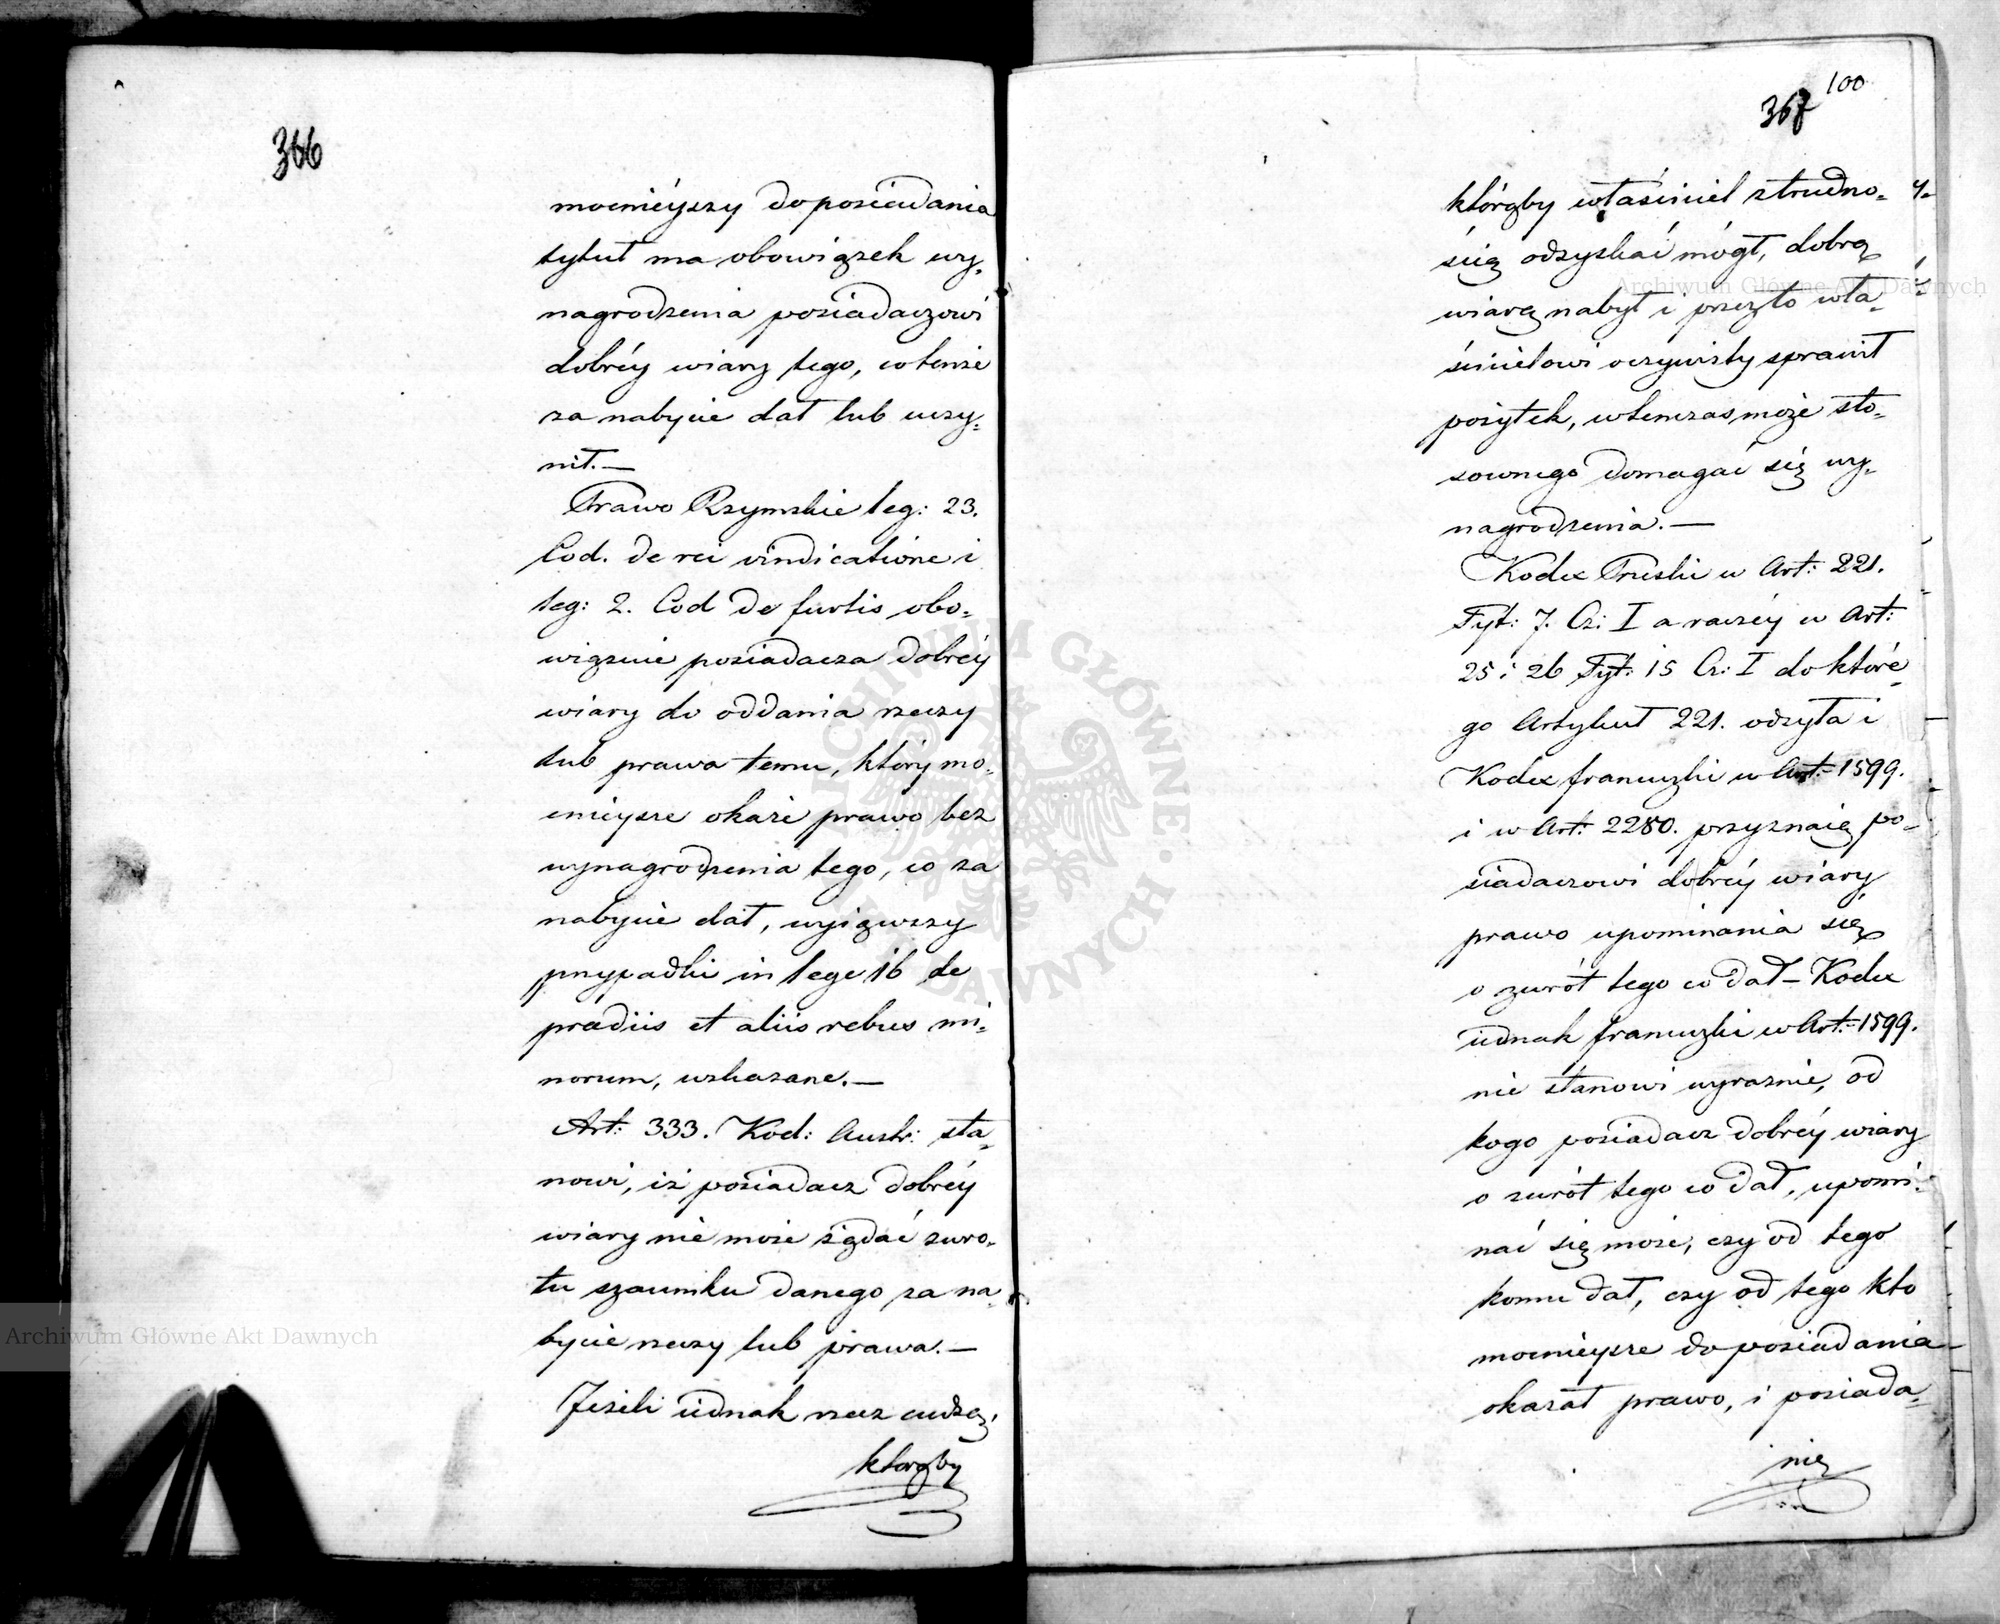 366
mocnieyszy do posiadania
tytuł ma obowiązek wy„
nagrodzenia posiadaczowi
dobréy wiary tego, co tenże
za nabycie dał lub uczy„
nił.—
Prawo Rzymskie leg: 23.
Cod. de rei vindicatione i
leg: 2. Cod de furtis obo„
wiązuie posiadacza dobréy
wiary do oddania rzeczy
lub prawa temu, który mo„
cnieysze okaże prawo bez
wynagrodzenia tego, co za
nabycie dał, wyiąwszy
przypadki in lege 16 de
prædiis et aliis rebus mi„
norum, wskazane.—
Art: 333. Kod: Austr: sta„
nowi, iż posiadacz dobréy
wiary nie może żądać zwro„
tu szacunku danego za na„
bycie rzeczy lub prawa.—
Jeżeli iednak rzecz cudzą,
którąby
100
367
którąby właściciel z trudno„
ścią odzyskać mógł, dobrą
wiarą nabył i przezto wła„
ścicielowi oczywisty sprawił
pożytek, wtenczas może sto„
sownego domagać się wy„
nagrodzenia.—
Kodex Pruski w Art: 221.
Tyt: 7. Cz: I a raczéy w Art:
25 i 26 Tyt: 15 Cz: I do które„
go Artykuł 221. odsyła i
Kodex francuzki w Art: 1599.
i w Art: 2280. przyznaią po„
siadaczowi dobréy wiary
prawo upominania się
o zwrót tego co dał — Kodex
iednak francuzki w Art: 1599.
nie stanowi wyraźnie, od
kogo posiadacz dobréy wiary
o zwrót tego co dał, upomi„
nać się może, czy od tego
komu dał, czy od tego kto
mocnieysze do posiadania
okazał prawo, i posiada„
nie
Archiwum Główne Akt Dawnych
Archiwum Główne Akt Dawnych
ARCHIWUM GŁÓWNE AKT DAWNYCH